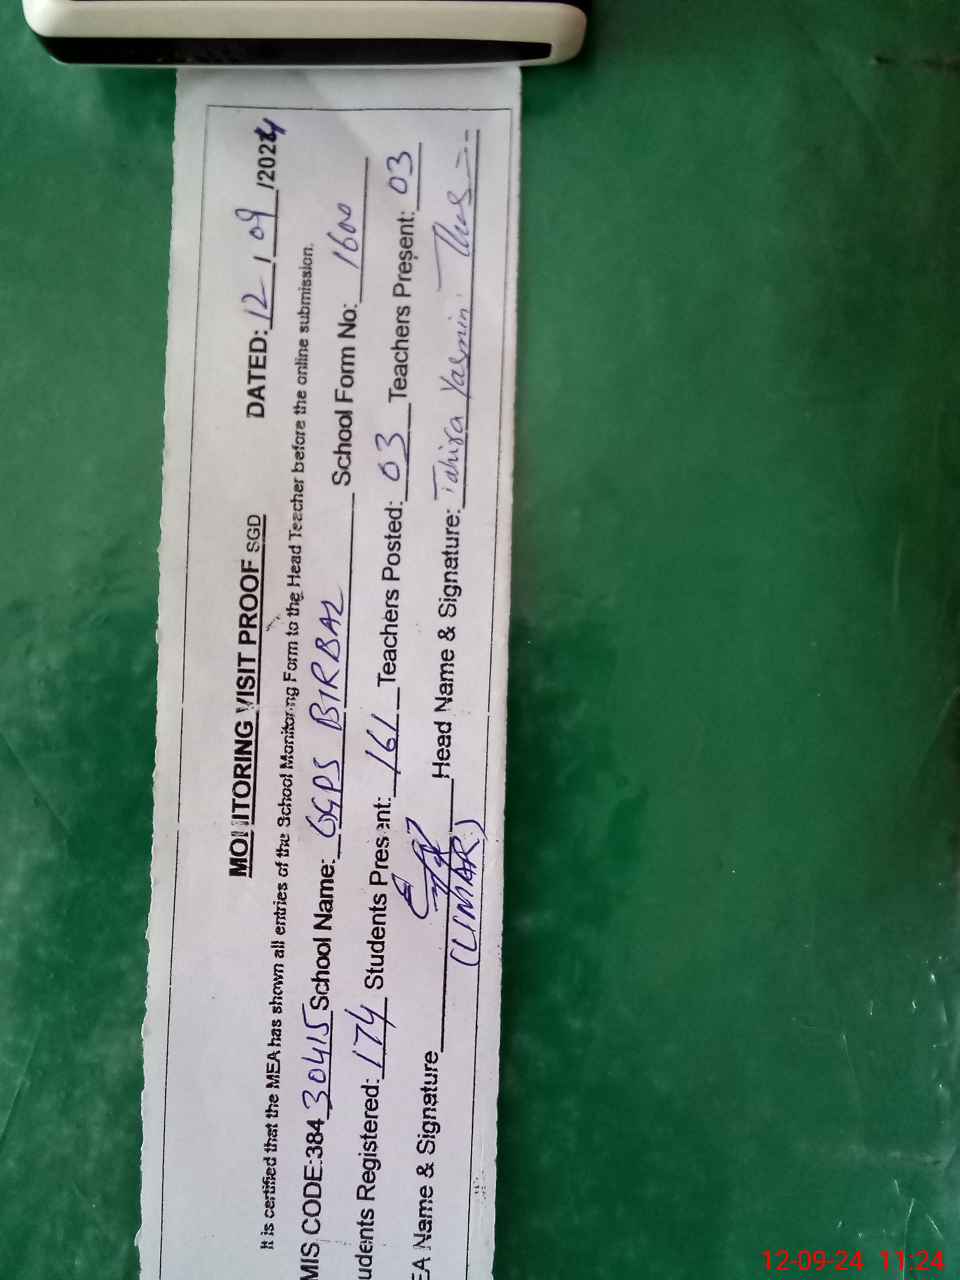 MONITORING VISIT PROOF SGD DATED: 12 / 09 /2024
It is certified that the MEA has shown all entries of the School Monitoring Form to the Head Teacher before the online submission.
MIS CODE:384 30415 School Name: GGPS BIRBAL School Form No: 1600
udents Registered: 174 Students Present: 161 Teachers Posted: 03 Teachers Present: 03
EA Name & Signature (UMAR) Head Name & Signature: Tahira Yasmin
12-09-24 11:24